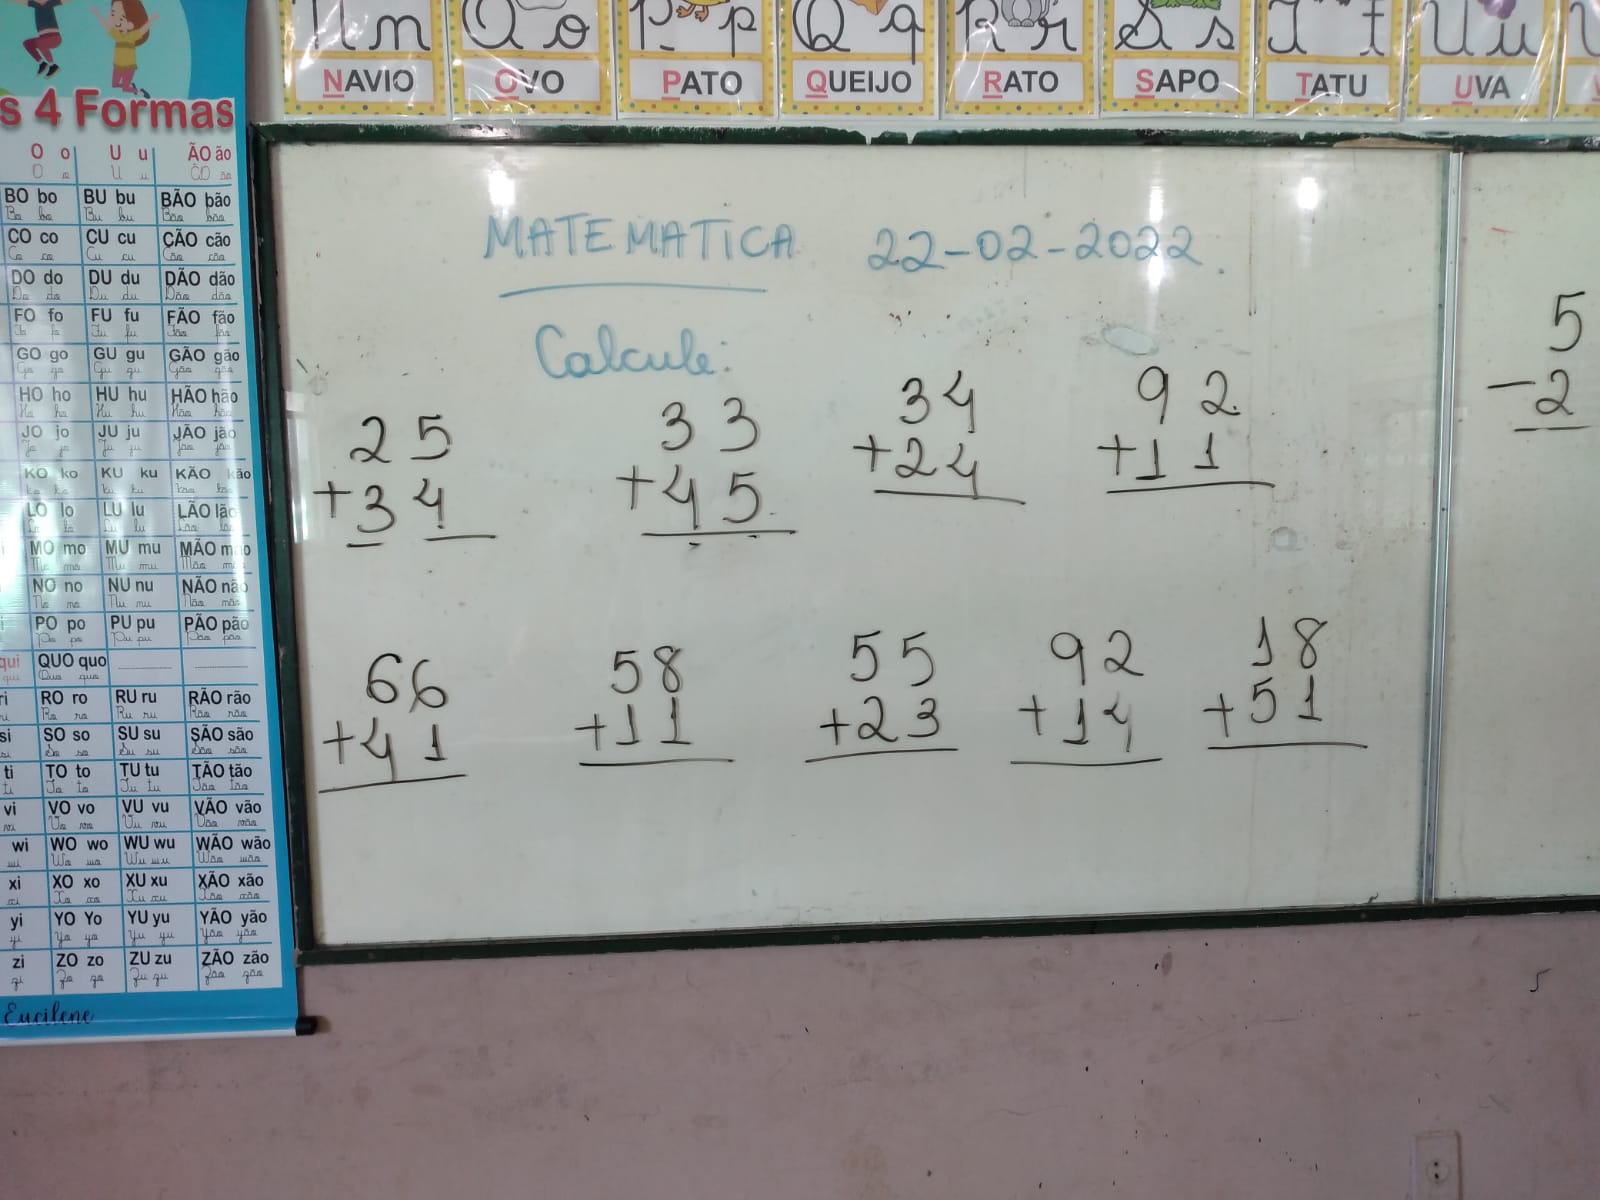 N n O o P p Q q R r S s T t U u
NAVIO OVO PATO QUEIJO RATO SAPO TATU UVA
s 4 Formas
O o U u ÃO ão
BO bo BU bu BÃO bão
CO co CU cu CÃO cão
DO do DU du DÃO dão
FO fo FU fu FÃO fão
GO go GU gu GÃO gão
HO ho HU hu HÃO hão
JO jo JU ju JÃO jão
KO ko KU ku KÃO kão
LO lo LU lu LÃO lão
MO mo MU mu MÃO mão
NO no NU nu NÃO não
PO po PU pu PÃO pão
qui QUO quo
ri RO ro RU ru RÃO rão
si SO so SU su SÃO são
ti TO to TU tu TÃO tão
vi VO vo VU vu VÃO vão
wi WO wo WU wu WÃO wão
xi XO xo XU xu XÃO xão
yi YO Yo YU yu YÃO yão
zi ZO zo ZU zu ZÃO zão
Eucilene
MATEMATICA 22-02-2022.
Calcule:
25 33 34 92
+34 +45 +24 +11
66 58 55 92 18
+41 +11 +23 +14 +51
5
-2